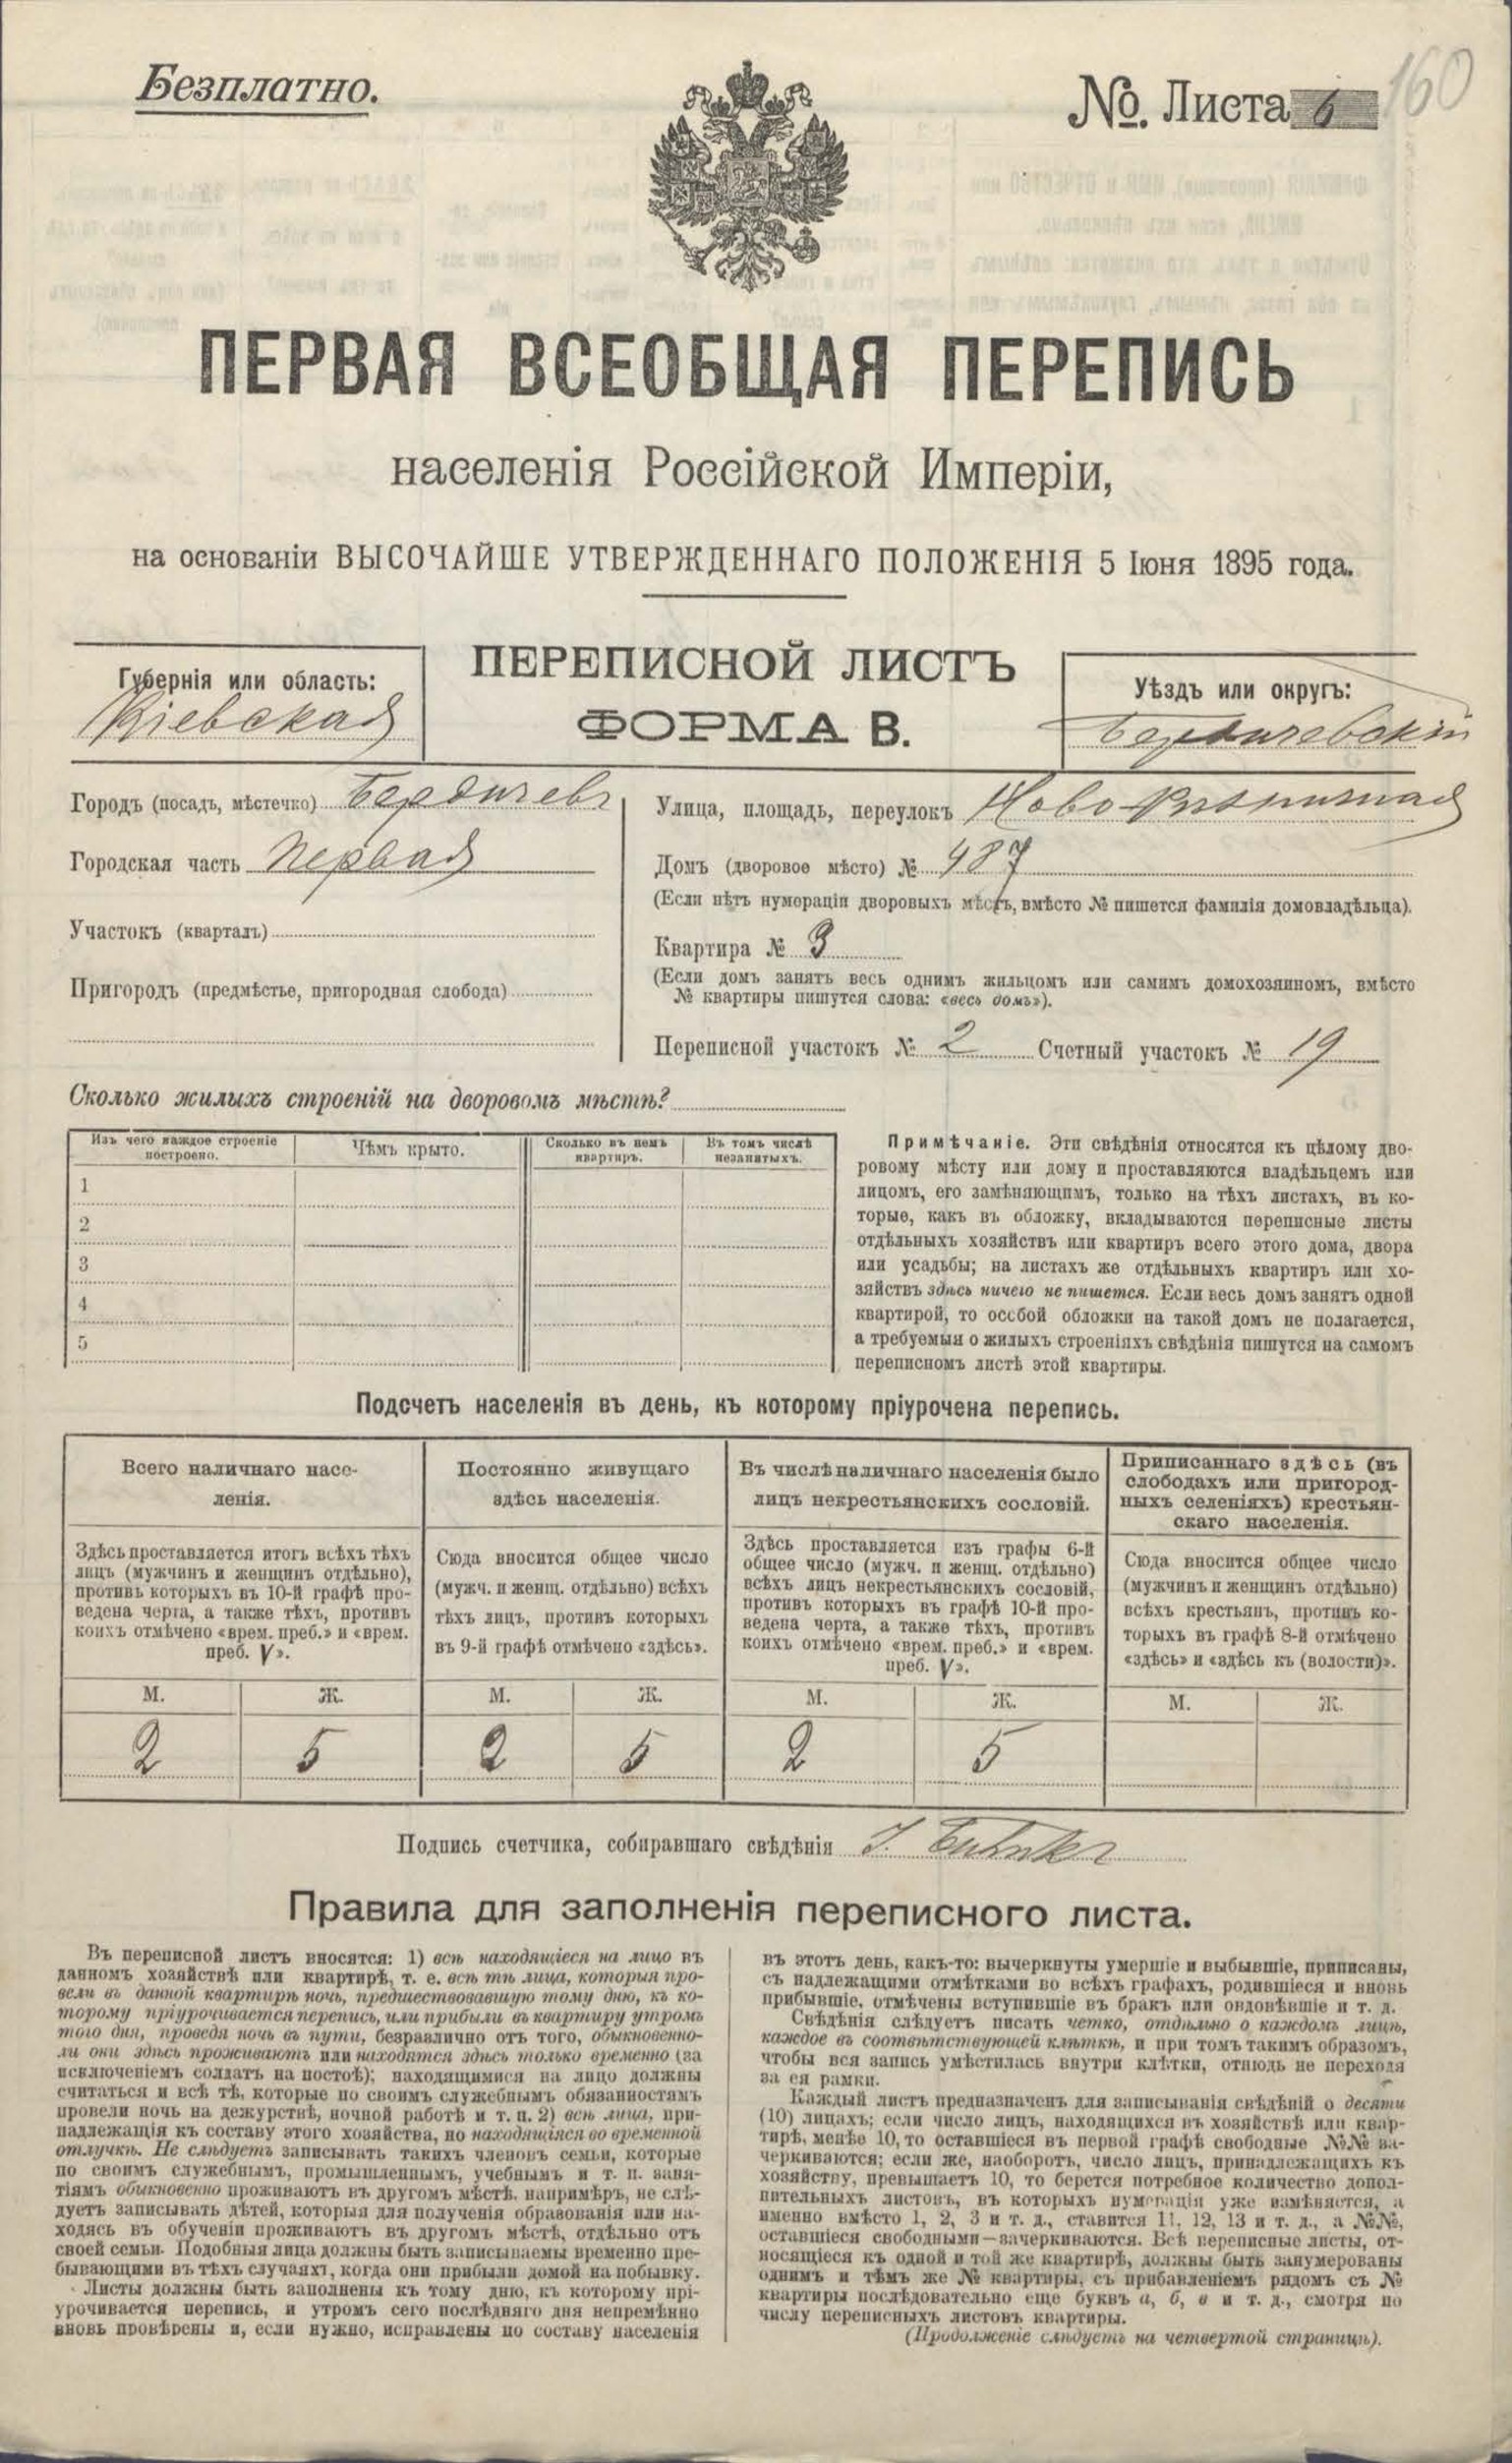 Безплатно.
№. Листа 6
160
ПЕРВАЯ ВСЕОБЩАЯ ПЕРЕПИСЬ
населенія Россійской Имперіи,
на основаніи ВЫСОЧАЙШЕ УТВЕРЖДЕННАГО ПОЛОЖЕНІЯ 5 Іюня 1895 года.
ПЕРЕПИСНОЙ ЛИСТЪ
ФОРМА В.
Губернія или область:
Кіевская
Уѣздъ или округъ:
Бердичевскій
Городъ (посадъ, мѣстечко) Бердичевъ
Городская часть Первая
Участокъ (кварталъ)
Пригородъ (предмѣстье, пригородная слобода)
Улица, площадь, переулокъ Ново-
Домъ (дворовое мѣсто) № 487
(Если нѣтъ нумераціи дворовыхъ мѣстъ, вмѣсто № пишется фамилія домовладѣльца).
Квартира № 3
(Если домъ занятъ весь однимъ жильцомъ или самимъ домохозяиномъ, вмѣсто
№ квартиры пишутся слова: «весь домъ»).
Переписной участокъ № 2 Счетный участокъ № 19
Сколько жилыхъ строеній на дворовомъ мѣстѣ?
Изъ чего каждое строеніе
построено.
Чѣмъ крыто.
Сколько въ немъ
квартиръ.
Въ томъ числѣ
незанятыхъ.
1
2
3
4
5
Примѣчаніе. Эти свѣдѣнія относятся къ цѣлому дво-
ровому мѣсту или дому и проставляются владѣльцемъ или
лицомъ, его замѣняющимъ, только на тѣхъ листахъ, въ ко-
торые, какъ въ обложку, вкладываются переписные листы
отдѣльныхъ хозяйствъ или квартиръ всего этого дома, двора
или усадьбы; на листахъ же отдѣльныхъ квартиръ или хо-
зяйствъ здѣсь ничего не пишется. Если весь домъ занятъ одной
квартирой, то особой обложки на такой домъ не полагается,
а требуемыя о жилыхъ строеніяхъ свѣдѣнія пишутся на самомъ
переписномъ листѣ этой квартиры.
Подсчетъ населенія въ день, къ которому пріурочена перепись.
Всего наличнаго насе-
ленія.
Здѣсь проставляется итогъ всѣхъ тѣхъ
лицъ (мужчинъ и женщинъ отдѣльно),
противъ которыхъ въ 10-й графѣ про-
ведена черта, а также тѣхъ, противъ
коихъ отмѣчено «врем. преб.» и «врем.
преб. V».
М. Ж.
2 5
Постоянно живущаго
здѣсь населенія.
Сюда вносится общее число
(мужч. и женщ. отдѣльно) всѣхъ
тѣхъ лицъ, противъ которыхъ
въ 9-й графѣ отмѣчено «здѣсь».
М. Ж.
2 5
Въ числѣ наличнаго населенія было
лицъ некрестьянскихъ сословій.
Здѣсь проставляется изъ графы 6-й
общее число (мужч. и женщ. отдѣльно)
всѣхъ лицъ некрестьянскихъ сословій,
противъ которыхъ въ графѣ 10-й про-
ведена черта, а также тѣхъ, противъ
коихъ отмѣчено «врем. преб.» и «врем.
преб. V».
М. Ж.
2 5
Приписаннаго здѣсь (въ
слободахъ или пригород-
ныхъ селеніяхъ) крестьян-
скаго населенія.
Сюда вносится общее число
(мужчинъ и женщинъ отдѣльно)
всѣхъ крестьянъ, противъ ко-
торыхъ въ графѣ 8-й отмѣчено
«здѣсь» и «здѣсь къ (волости)».
М. Ж.
Подпись счетчика, собиравшаго свѣдѣнія
Правила для заполненія переписного листа.
Въ переписной листъ вносятся: 1) всѣ находящіеся на лицо въ
данномъ хозяйствѣ или квартирѣ, т. е. всѣ тѣ лица, которыя про-
вели въ данной квартирѣ ночь, предшествовавшую тому дню, къ ко-
торому пріурочивается перепись, или прибыли въ квартиру утромъ
того дня, проведя ночь въ пути, безразлично отъ того, обыкновенно-
ли они здѣсь проживаютъ или находятся здѣсь только временно (за
исключеніемъ солдатъ на постоѣ); находящимися на лицо должны
считаться и всѣ тѣ, которые по своимъ служебнымъ обязанностямъ
провели ночь на дежурствѣ, ночной работѣ и т. п. 2) всѣ лица, при-
надлежащія къ составу этого хозяйства, но находящіяся во временной
отлучкѣ. Не слѣдуетъ записывать такихъ членовъ семьи, которые
по своимъ служебнымъ, промышленнымъ, учебнымъ и т. п. заня-
тіямъ обыкновенно проживаютъ въ другомъ мѣстѣ, напримѣръ, не слѣ-
дуетъ записывать дѣтей, которыя для полученія образованія или на-
ходясь въ обученіи проживаютъ въ другомъ мѣстѣ, отдѣльно отъ
своей семьи. Подобныя лица должны быть записываемы временно пре-
бывающими въ тѣхъ случаяхъ, когда они прибыли домой на побывку.
Листы должны быть заполнены къ тому дню, къ которому прі-
урочивается перепись, и утромъ сего послѣдняго дня непремѣнно
вновь провѣрены и, если нужно, исправлены по составу населенія
въ этотъ день, какъ-то: вычеркнуты умершіе и выбывшіе, приписаны,
съ надлежащими отмѣтками во всѣхъ графахъ, родившіеся и вновь
прибывшіе, отмѣчены вступившіе въ бракъ или овдовѣвшіе и т. д.
Свѣдѣнія слѣдуетъ писать четко, отдѣльно о каждомъ лицѣ,
каждое въ соотвѣтствующей клѣткѣ, и при томъ такимъ образомъ,
чтобы вся запись умѣстилась внутри клѣтки, отнюдь не переходя
за ея рамки.
Каждый листъ предназначенъ для записыванія свѣдѣній о десяти
(10) лицахъ; если число лицъ, находящихся въ хозяйствѣ или квар-
тирѣ, менѣе 10, то оставшіеся въ первой графѣ свободные №№ за-
черкиваются; если же, наоборотъ, число лицъ, принадлежащихъ къ
хозяйству, превышаетъ 10, то берется потребное количество допол-
нительныхъ листовъ, въ которыхъ нумерація уже измѣняется, а
именно вмѣсто 1, 2, 3 и т. д., ставится 11, 12, 13 и т. д., а №№,
оставшіеся свободными—зачеркиваются. Всѣ переписные листы, от-
носящіеся къ одной и той же квартирѣ, должны быть занумерованы
однимъ и тѣмъ же № квартиры, съ прибавленіемъ рядомъ съ №
квартиры послѣдовательно еще буквъ а, б, в и т. д., смотря по
числу переписныхъ листовъ квартиры.
(Продолженіе слѣдуетъ на четвертой страницѣ).